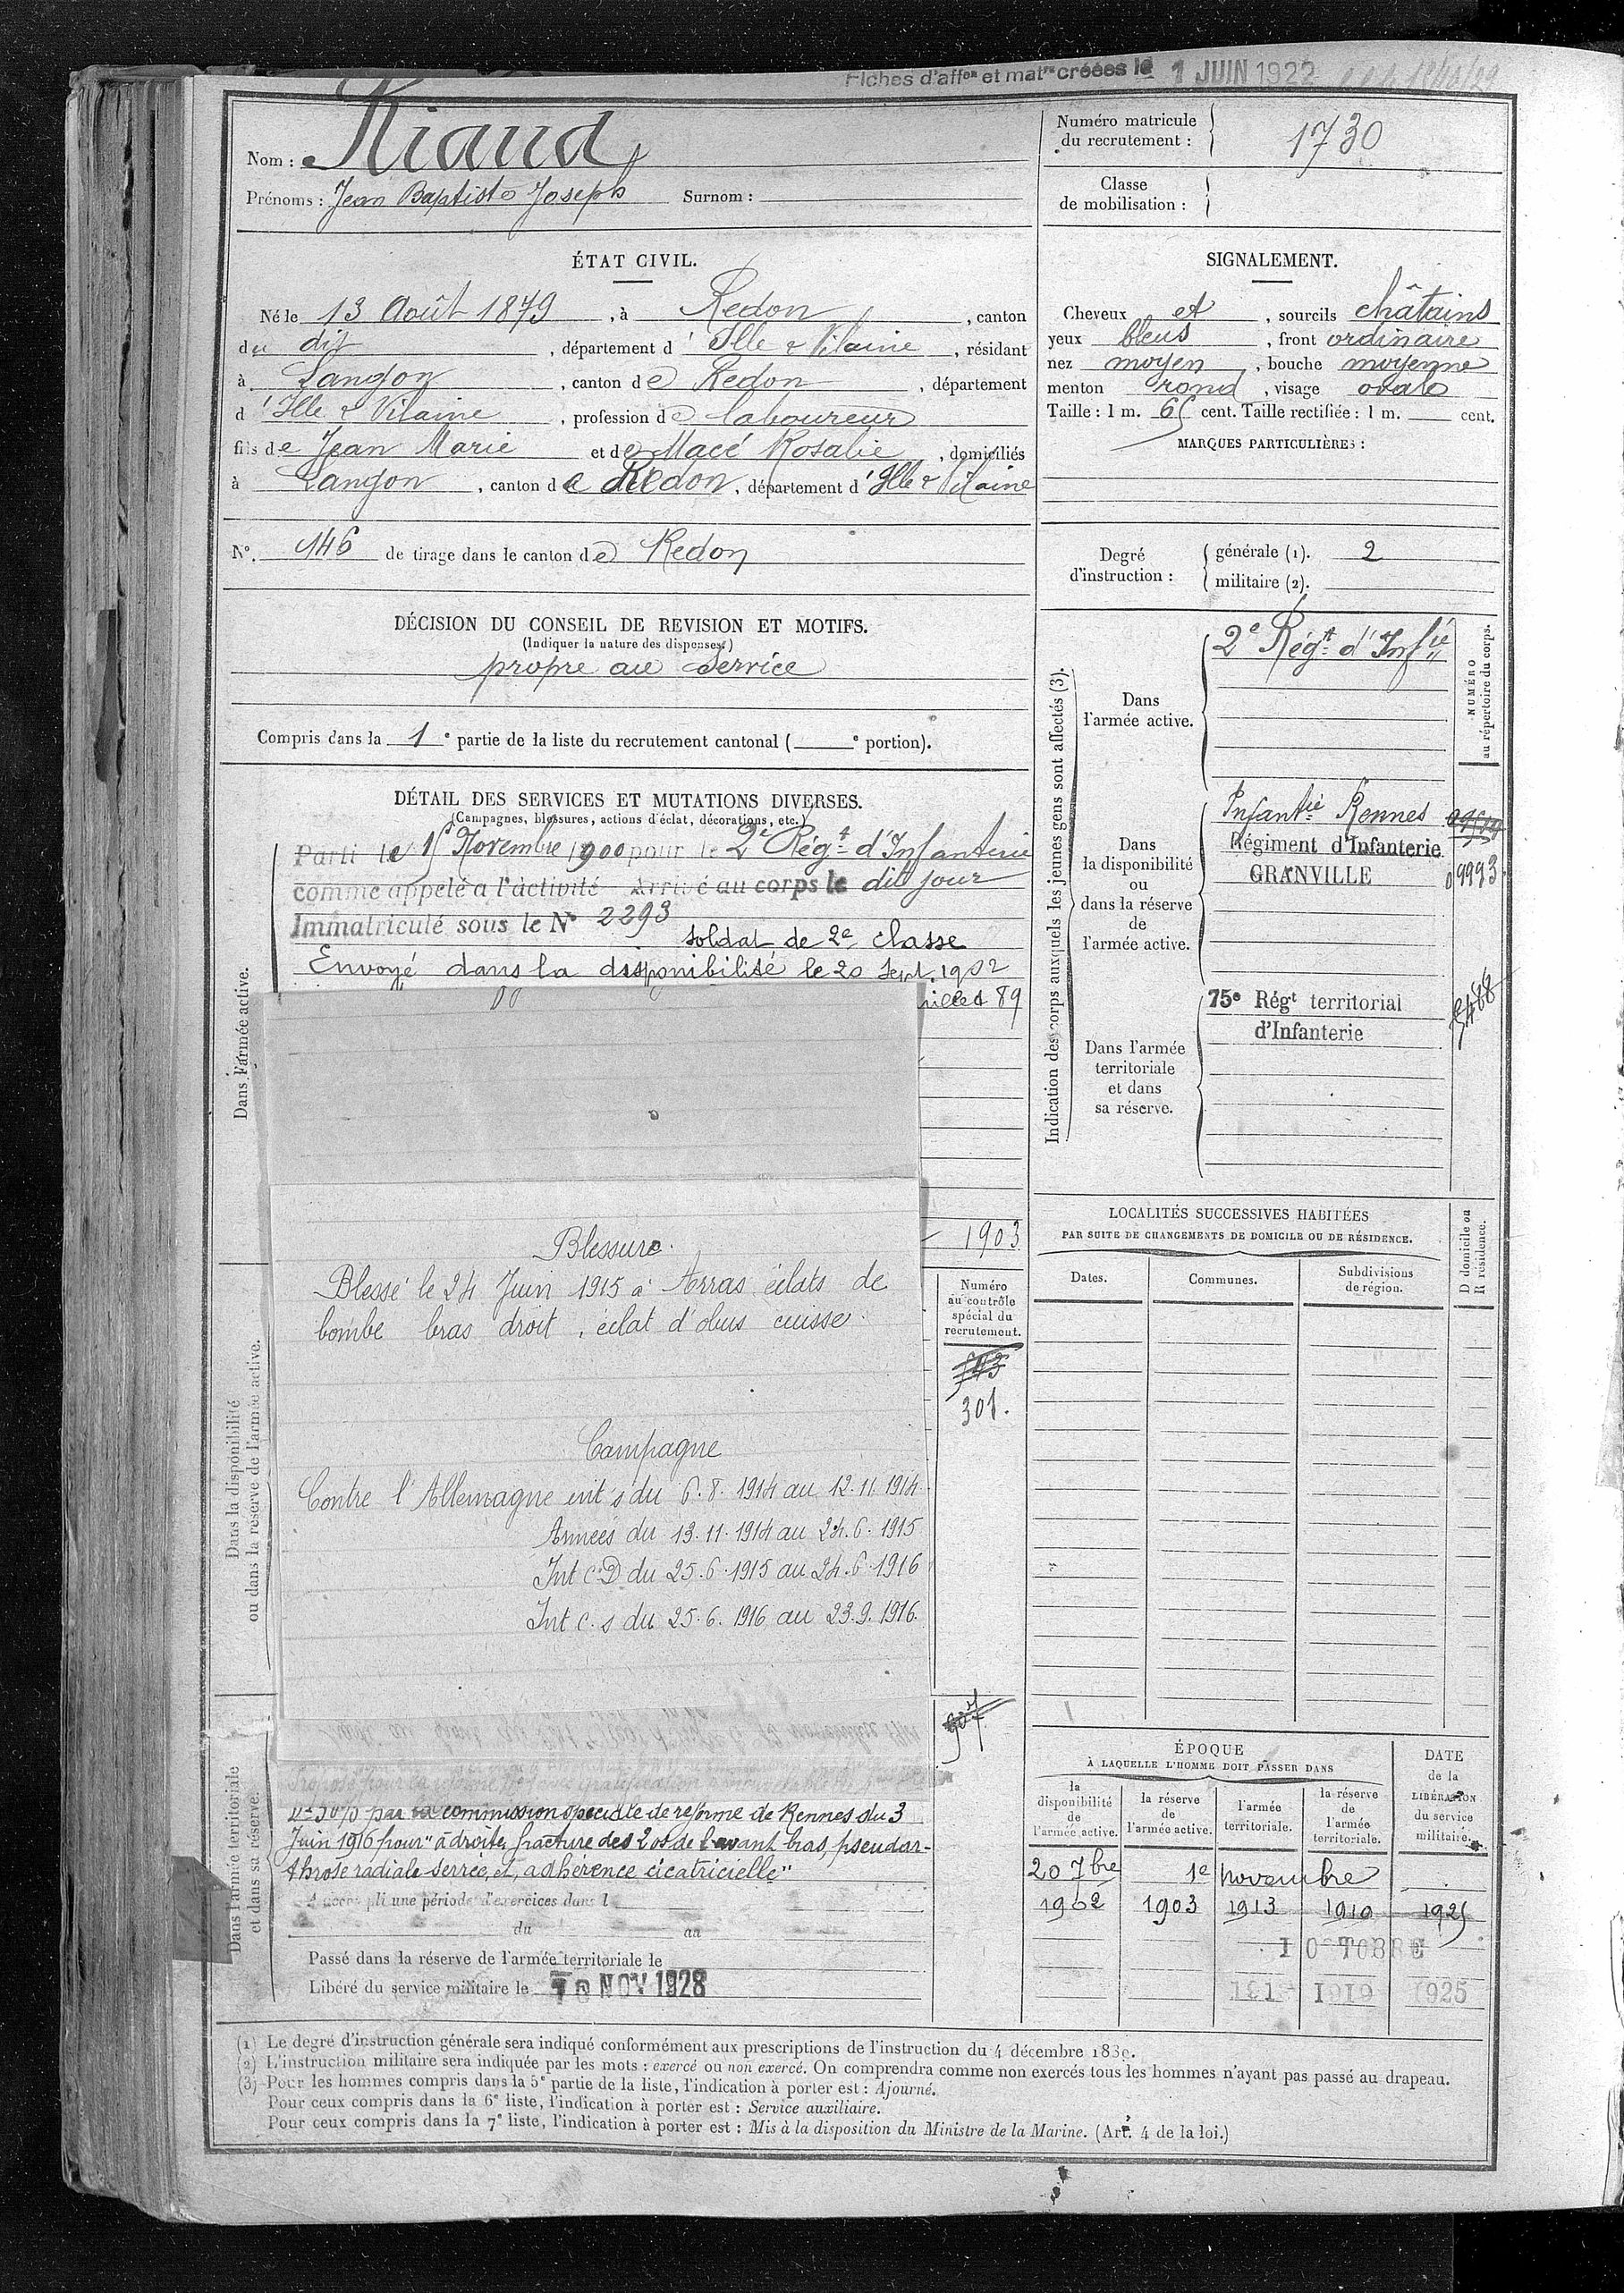 Fiches d'affon et matre créées le 1 JUIN 1922
Nom : Riaud
Prénoms : Jean Baptiste Joseph Surnom :
Numéro matricule du recrutement : 1730
Classe de mobilisation :
ÉTAT CIVIL.
Né le 13 Août 1879, à Redon, canton
du dit, département d'Ille & Vilaine, résidant
à Langon, canton de Redon, département
d'Ille & Vilaine, profession de laboureur
fils de Jean Marie et de Macé Rosalie, domiciliés
à Langon, canton de Redon, département d'Ille & Vilaine
N°. 146 de tirage dans le canton de Redon
SIGNALEMENT.
Cheveux et, sourcils châtains
yeux bleus, front ordinaire
nez moyen, bouche moyenne
menton rond, visage ovale
Taille : 1 m. 65 cent. Taille rectifiée : 1 m. cent.
MARQUES PARTICULIÈRES :
Degré d'instruction : générale (1). 2
militaire (2).
DÉCISION DU CONSEIL DE REVISION ET MOTIFS.
(Indiquer la nature des dispenses.)
propre au service
Compris dans la 1e partie de la liste du recrutement cantonal ( e portion).
DÉTAIL DES SERVICES ET MUTATIONS DIVERSES.
(Campagnes, blessures, actions d'éclat, décorations, etc.)
Dans l'armée active.
Parti le 15 Novembre 1900 pour le 2e Régt d'Infanterie
comme appelé à l'activité Arrivé au corps le dit jour
Immatriculé sous le N° 2293
soldat de 2e classe
Envoyé dans la disponibilité le 20 Sept. 1902
89
1903
Blessure.
Blessé le 24 Juin 1915 à Arras éclats de
bombe bras droit, éclat d'obus cuisse.
Campagne
Contre l'Allemagne int s du 6.8.1914 au 12.11.1914
Armées du 13.11.1914 au 24.6.1915
Int C.D du 25.6.1915 au 24.6.1916
Int C.s du 25.6.1916 au 23.9.1916.
Dans la disponibilité
ou dans la réserve de l'armée active.
Numéro
au contrôle
spécial du
recrutement.
301.
907
Dans l'armée territoriale
et dans sa réserve.
par la commission spéciale de réforme de Rennes du 3
Juin 1916 pour "à droite, fracture des 2 os de l'avant bras, pseudar-
throse radiale serrée, et adhérence cicatricielle"
A accompli une période d'exercices dans l
du au
Passé dans la réserve de l'armée territoriale le
Libéré du service militaire le 10 NOV 1928
Indication des corps auxquels les jeunes gens sont affectés (3).
NUMÉRO
au répertoire du corps.
Dans
l'armée active.
2e Régt d'Infie
Dans
la disponibilité
ou
dans la réserve
de
l'armée active.
Infantie Rennes
Régiment d'Infanterie
GRANVILLE 09993
Dans l'armée
territoriale
et dans
sa réserve.
75e Régt territorial
d'Infanterie
LOCALITÉS SUCCESSIVES HABITÉES
PAR SUITE DE CHANGEMENTS DE DOMICILE OU DE RÉSIDENCE.
D domicile ou
R résidence.
Dates. Communes. Subdivisions de région.
ÉPOQUE
À LAQUELLE L'HOMME DOIT PASSER DANS
DATE
de la
LIBÉRATION
du service
militaire.
la disponibilité de l'armée active.
la réserve de l'armée active.
l'armée territoriale.
la réserve de l'armée territoriale.
20 7bre 1e novembre
1902 1903 1913 1919 1925
1 OCTOBRE
1919 1925
(1) Le degré d'instruction générale sera indiqué conformément aux prescriptions de l'instruction du 4 décembre 1889.
(2) L'instruction militaire sera indiquée par les mots : exercé ou non exercé. On comprendra comme non exercés tous les hommes n'ayant pas passé au drapeau.
(3) Pour les hommes compris dans la 5e partie de la liste, l'indication à porter est : Ajourné.
Pour ceux compris dans la 6e liste, l'indication à porter est : Service auxiliaire.
Pour ceux compris dans la 7e liste, l'indication à porter est : Mis à la disposition du Ministre de la Marine. (Art. 4 de la loi.)